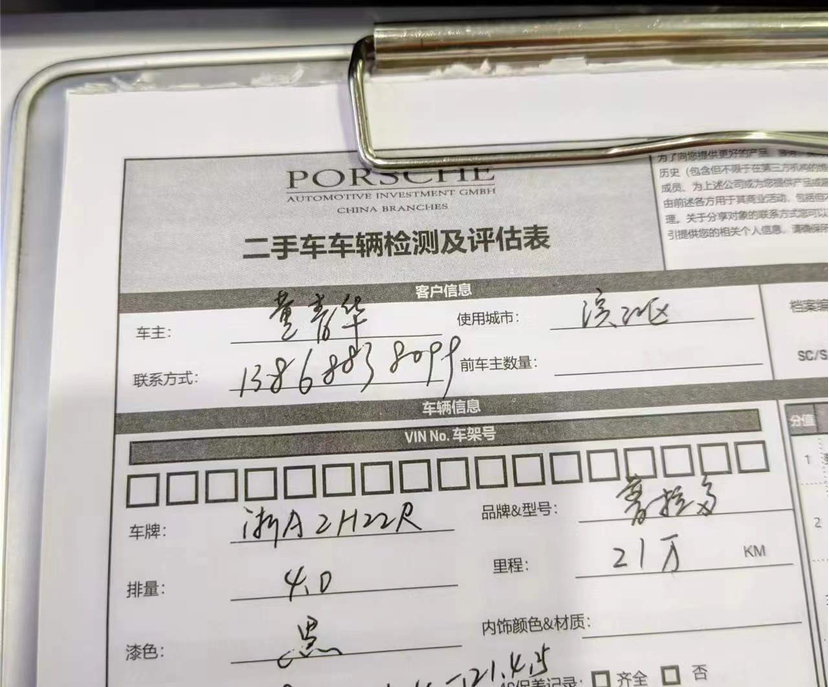 PORSCHE
AUTOMOTIVE INVESTMENT GMBH
CHINA BRANCHES
二手车车辆检测及评估表
为了向您提供更好的产品
历史（包含但不限于在第三方机构的
成员。为上述公司或为您提供产品或
由前述各方用于其商业活动，包括但
理。关于分享对象的联系方式您可以
引提供您的相关个人信息。请确保
客户信息
车主： 董青华 使用城市： 滨江区 档案编
联系方式： 13868838099 前车主数量： SC/S
车辆信息
VIN No. 车架号 分值
1
车牌： 浙A2H22R 品牌&型号： 普拉多
2
排量： 4.0 里程： 21万 KM
漆色： 黑 内饰颜色&材质：
保养记录： 齐全 否